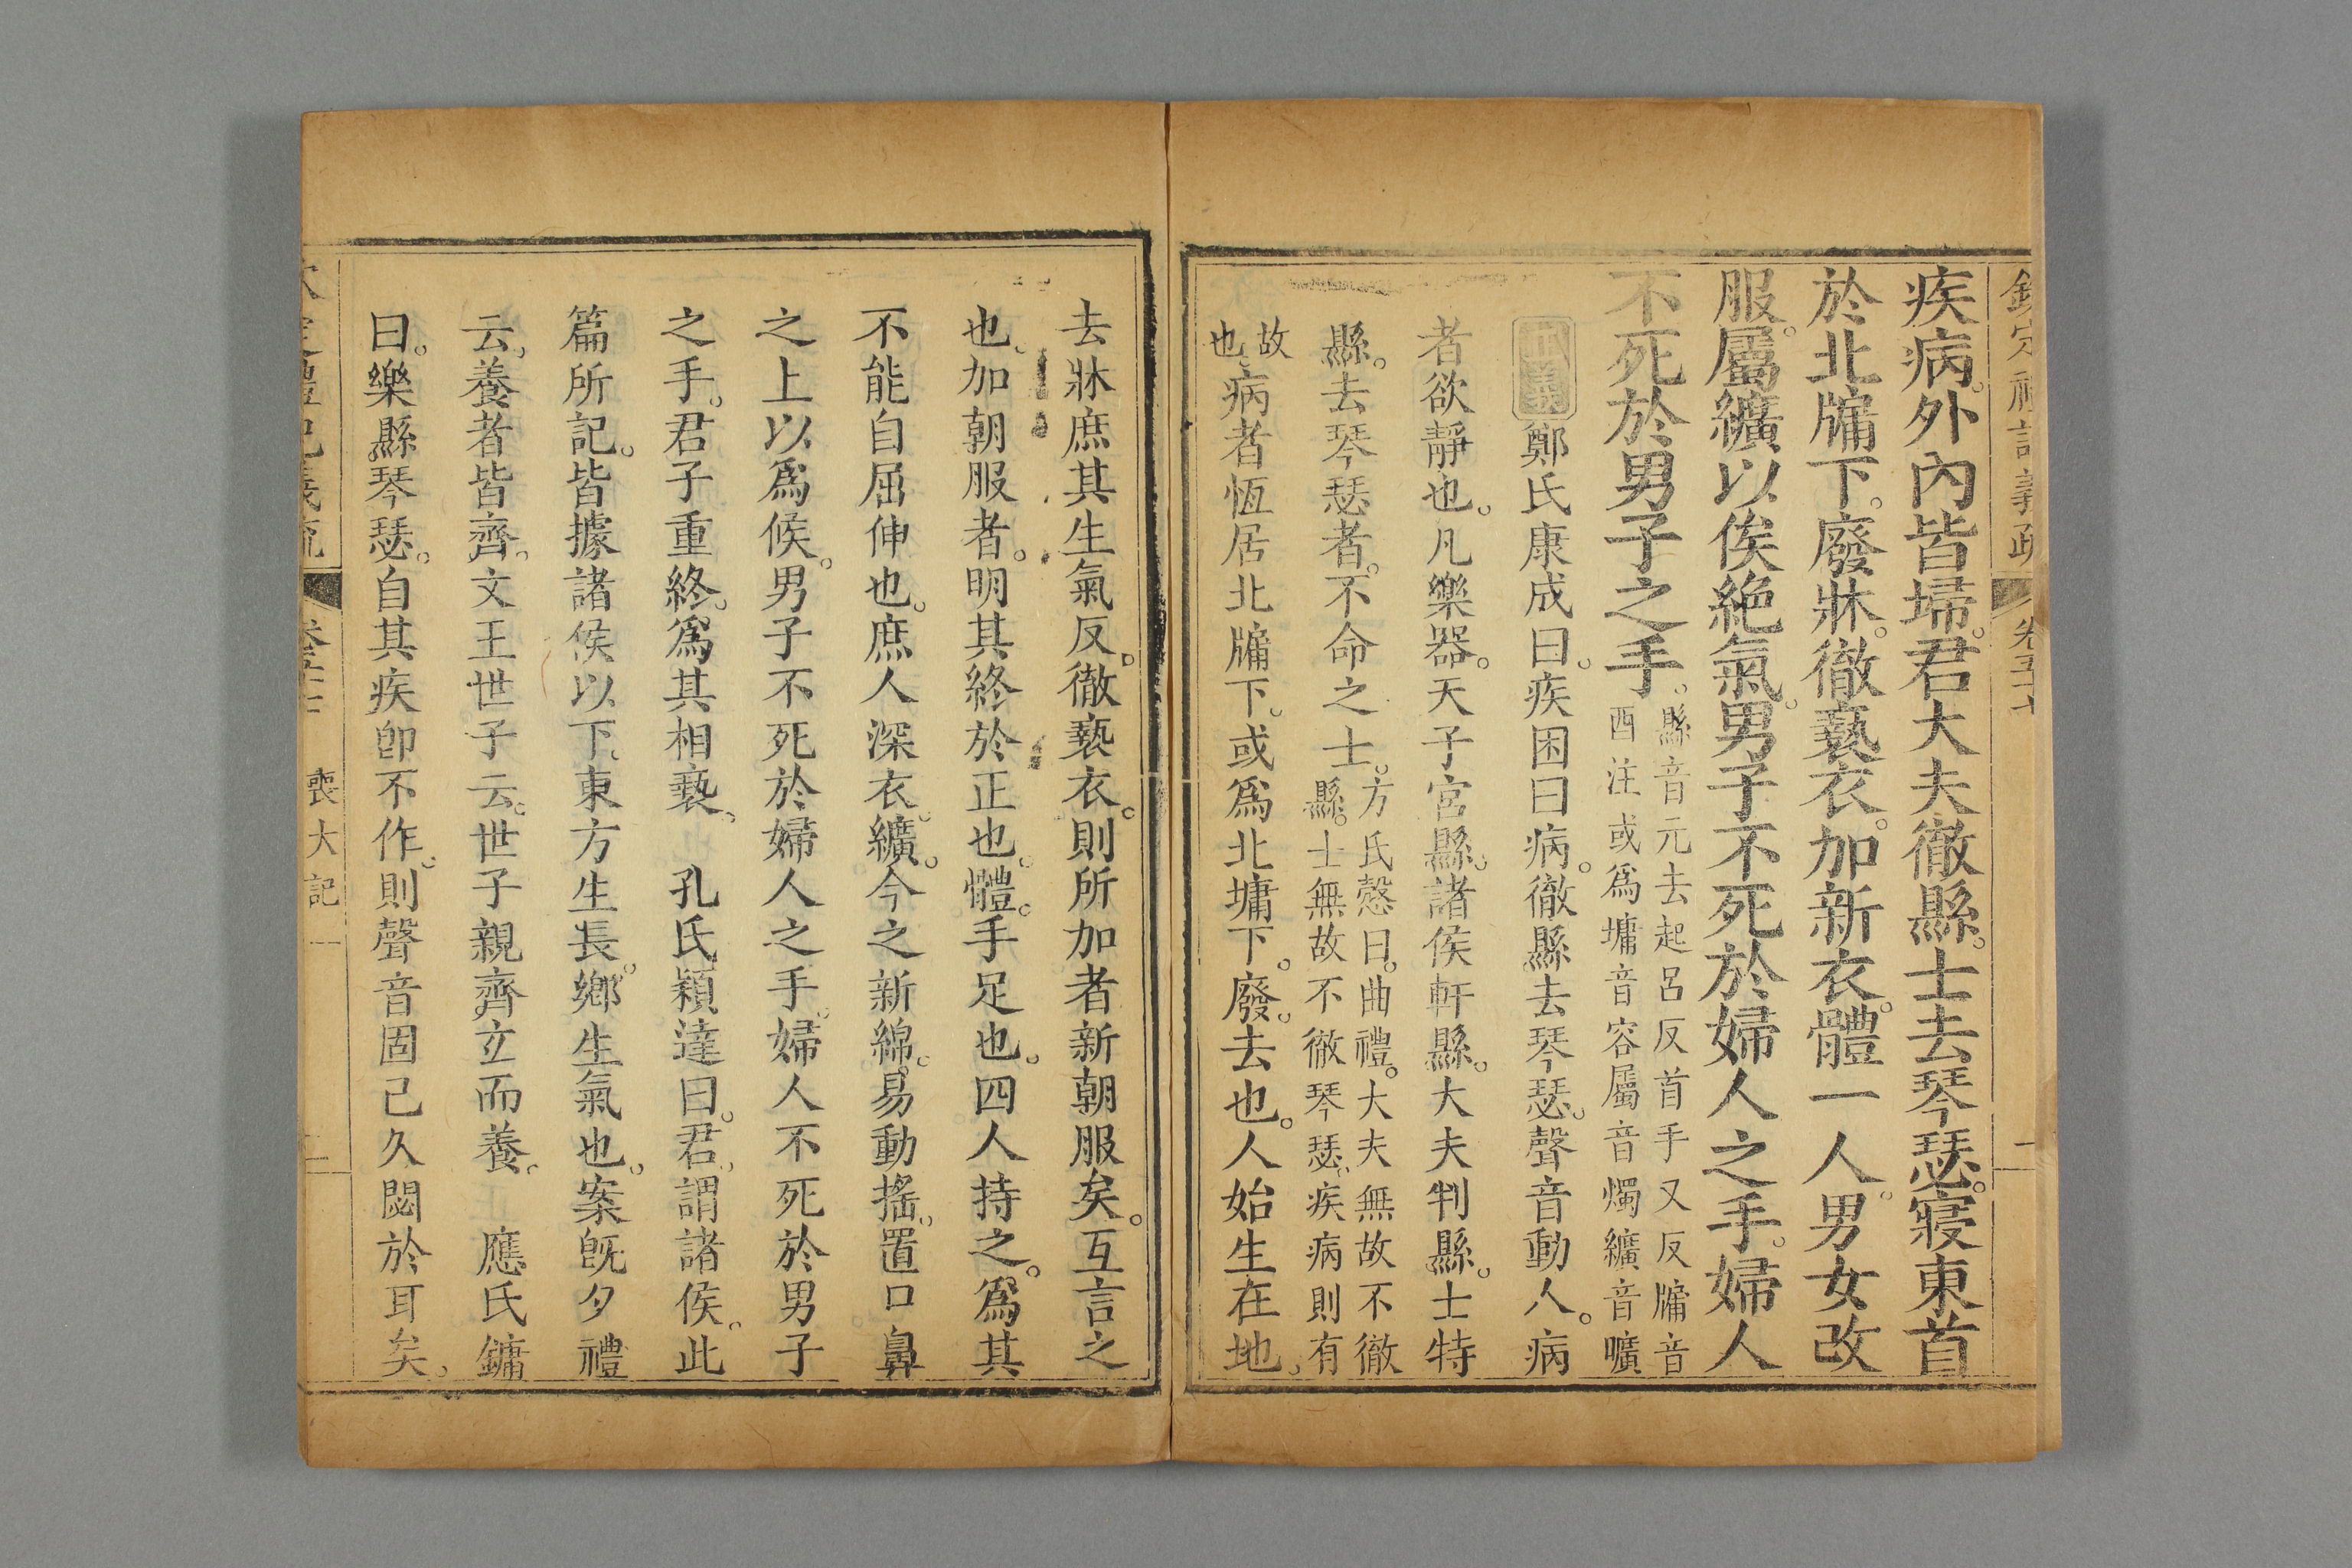 欽定禮記義疏 卷五十七 二
疾病。外內皆埽。君大夫徹縣。士去琴瑟。寢東首
於北牖下。廢牀。徹褻衣。加新衣。體一人。男女改
服。屬纊以俟絕氣。男子不死於婦人之手。婦人
不死於男子之手。縣音元去起呂反首手又反牖音
酉注或爲墉音容屬音燭纊音曠
正義鄭氏康成曰。疾困曰病。徹縣去琴瑟。聲音動人。病
者欲靜也。凡樂器。天子宮縣。諸侯軒縣。大夫判縣。士特
縣。去琴瑟者。不命之士。方氏慤曰。曲禮。大夫無故不徹
縣。士無故不徹琴瑟。疾病則有
故
也。病者恆居北牖下。或爲北墉下。廢。去也。人始生在地。
去牀庶其生氣反。徹褻衣。則所加者新朝服矣。互言之
也。加朝服者。明其終於正也。體。手足也。四人持之。爲其
不能自屈伸也。庶人深衣。纊。今之新綿。易動搖。置口鼻
之上以爲候。男子不死於婦人之手。婦人不死於男子
之手。君子重終。爲其相褻。 孔氏穎達曰。君。謂諸侯。此
篇所記。皆據諸侯以下。東方生長。鄉生氣也。案旣夕禮
云。養者皆齊。文王世子云。世子親齊立而養。 應氏鏞
曰。樂縣琴瑟。自其疾卽不作。則聲音固已久閟於耳矣。
欽定禮記義疏 卷五十七 喪大記 二